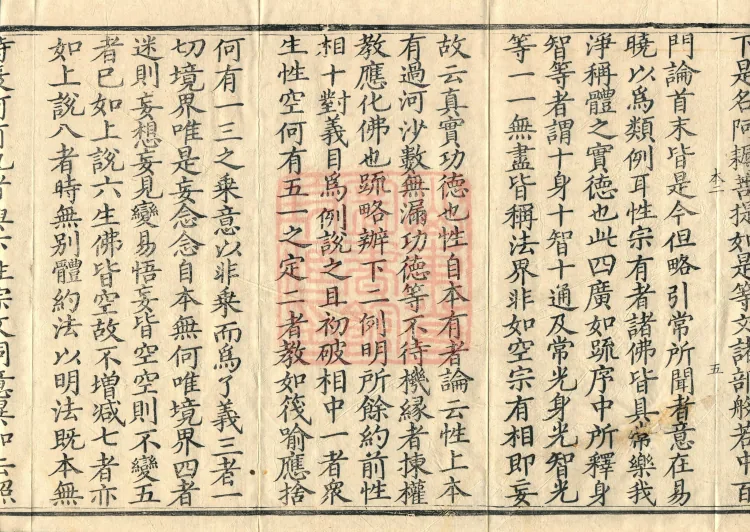 下是名阿耨菩提如是等文諸部般若中百
門論首末皆是今但略引常所聞者意在易
曉以爲類例耳性宗有者諸佛皆具常樂我
淨稱體之實德也此四廣如疏序中所釋身
智等者謂十身十智十通及常光身光智光
等一一無盡皆稱法界非如空宗有相即妄
故云真實功德也性自本有者論云性上本
有過河沙數無漏功德等不待機緣者揀權
教應化佛也疏略辨下二例明所餘約前性
相十對義目爲例說之且初破相中一者衆
生性空何有五一之定二者教如筏喻應捨
何有一三之乘意以非乘而爲了義三者一
切境界唯是妄念念自本無何唯境界四者
迷則妄想妄見變易悟妄皆空空則不變五
者已如上說六生佛皆空故不增減七者亦
如上說八者時無別體約法以明法既本無
木二
五